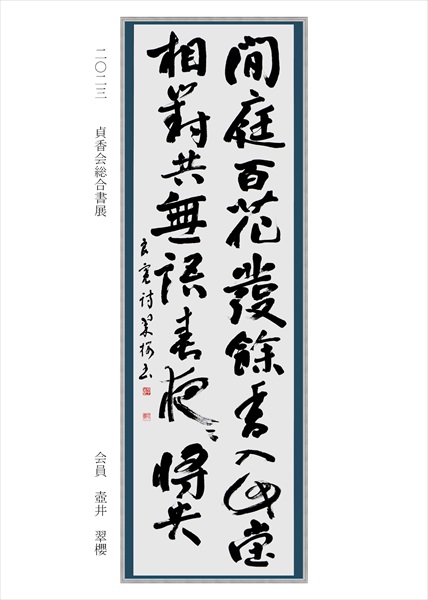 間庭百花發餘香入此堂
相對共無語春夜〻将央
良寛詩翠櫻書
二〇二三　貞香会総合書展
会員　壺井　翠櫻